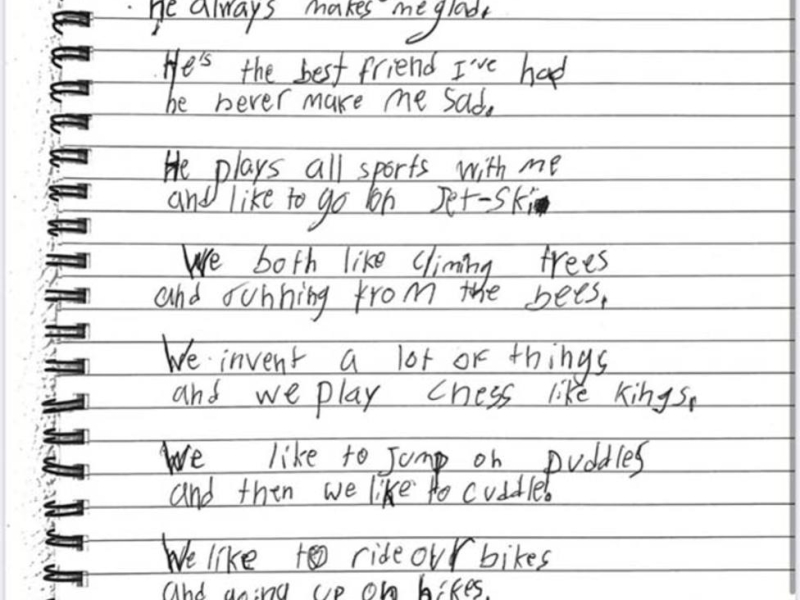 he always makes me glad.
He's the best friend I've had
he never make me sad.
He plays all sports with me
and like to go on Jet-Ski
We both like climing trees
and running from the bees.
We invent a lot of things
and we play chess like kings.
We like to jump on puddles
and then we like to cuddle.
We like to ride our bikes
and going up on hikes.